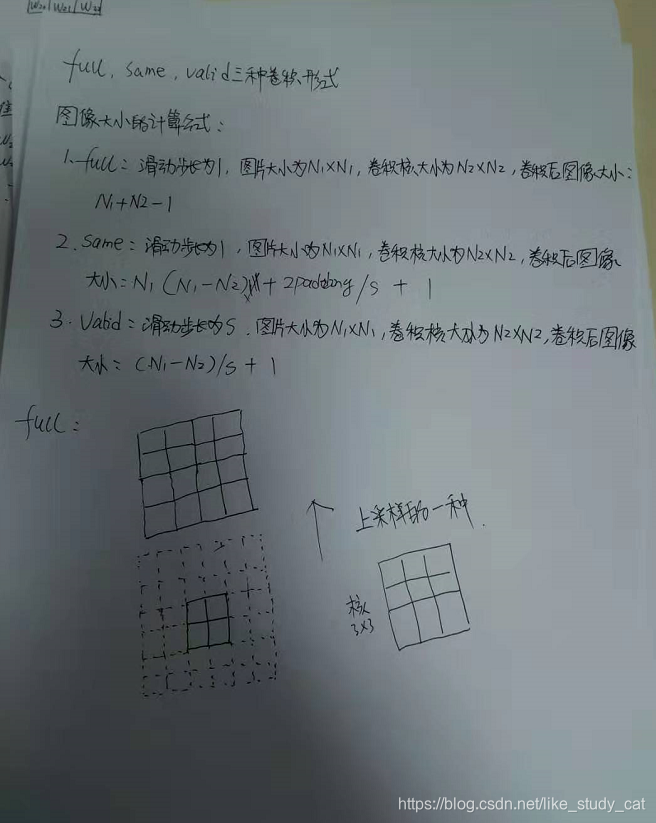 W20 W21 W22
full、same、valid三种卷积形式
图像大小的计算公式：
1. full：滑动步长为1，图片大小为N1×N1，卷积核大小为N2×N2，卷积后图像大小：
N1+N2-1
2. Same：滑动步长为1，图片大小为N1×N1，卷积核大小为N2×N2，卷积后图像
大小：N1 (N1-N2)+2padding/s + 1
3. Valid：滑动步长为S，图片大小为N1×N1，卷积核大小为N2×N2，卷积后图像
大小：(N1-N2)/s + 1
full：
上采样的一种.
核
3×3
https://blog.csdn.net/like_study_cat